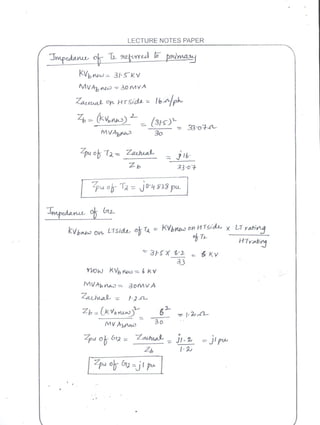 LECTURE NOTES PAPER
Impedance of T2 referred to primary
KVb new = 31.5 KV
MVAb new = 30 MVA
Zactual on HT side = 16 Ω/ph
Zb = (KVb new)² / MVAb new = (31.5)² / 30 = 33.07 Ω
Zpu of T2 = Zactual / Zb = j16 / 33.07
Zpu of T2 = j0.4838 pu
Impedance of G2
KVb new on LT side of T2 = KVb new on HT side of T2 x LT rating / HT rating
= 31.5 x 6.2 / 33 = 6 KV
now KVb new = 6 KV
MVAb new = 30 MVA
Zactual = 1.2 Ω
Zb = (KVb new)² / MVAb new = 6² / 30 = 1.2 Ω
Zpu of G2 = Zactual / Zb = j1.2 / 1.2 = j1 pu
Zpu of G2 = j1 pu